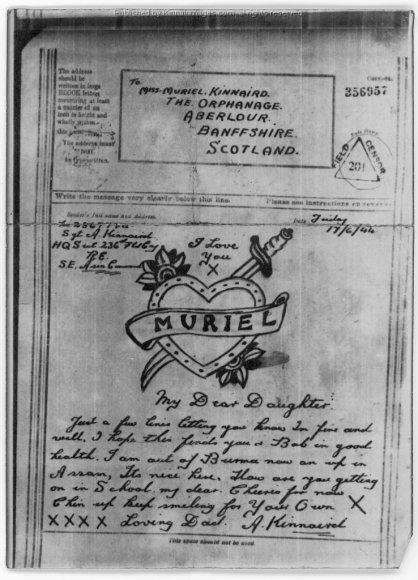 The address
should be
written in large
BLOCK letters
measuring at least
a quarter of an
inch in height and
wholly within
this
The address must
NOT
be typewritten.
To
MISS. MURIEL. KINNAIRD.
THE. ORPHANAGE.
ABERLOUR.
BANFFSHIRE.
SCOTLAND.
356957
FIELD CENSOR
201
Write the message very clearly below this line.
Please see instructions on reverse
Sender's full name and address.
Date Friday
17/6/44
Sgt A. Kinnaird
R.E.
S.E.
I Love
You
X
MURIEL
My Dear Daughter.
Just a few lines letting you know Im fine and
well, I hope this finds you & Bob in good
health. I am out of Burma now an up in
Assam, Its nice here. How are you getting
on in School my dear. Cheerio for now
Chin up keep smiling for Your Own X
X X X X Loving Dad. A. Kinnaird
This space should not be used.